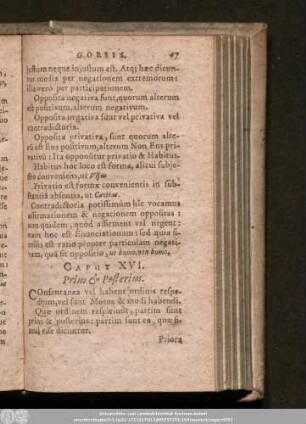 GORSIS. 47
iustum neque iniustum est. Atq; hæc dicun-
tur media per negationem extremorum:
illa vero per participationem.
Opposita negativa sunt, quorum alterum
est positivum, alterum negativum.
Opposita negativa sunt vel privativa vel
contradictoria.
Opposita privativa, sunt quorum alte-
rū est Ens positivum, alterum Non Ens pri-
vativū: Ita opponitur privatio & Habitus.
Habitus hoc loco est forma, alicui subje-
cto conveniens, ut Visus.
Privatio est formæ convenientis in sub-
stantiâ absentia, ut Cæcitas.
Contradictoria potissimùm hîc vocamus
affirmationem & negationem oppositas:
non quidem, quòd affirment vel negent:
nam hoc est Enunciationum: sed quia si-
milis est ratio propter particulam negati-
vam, quâ fit oppositio, ut homo, non homo.
CAPUT XVI.
Prius & Posterius.
Consentanea vel habent ordinis respe-
ctum, vel sunt Motus & modi habendi.
Quæ ordinem respiciunt, partim sunt
prius & posterius: partim sunt ea, quæ si-
mul esse dicuntur.
Priora